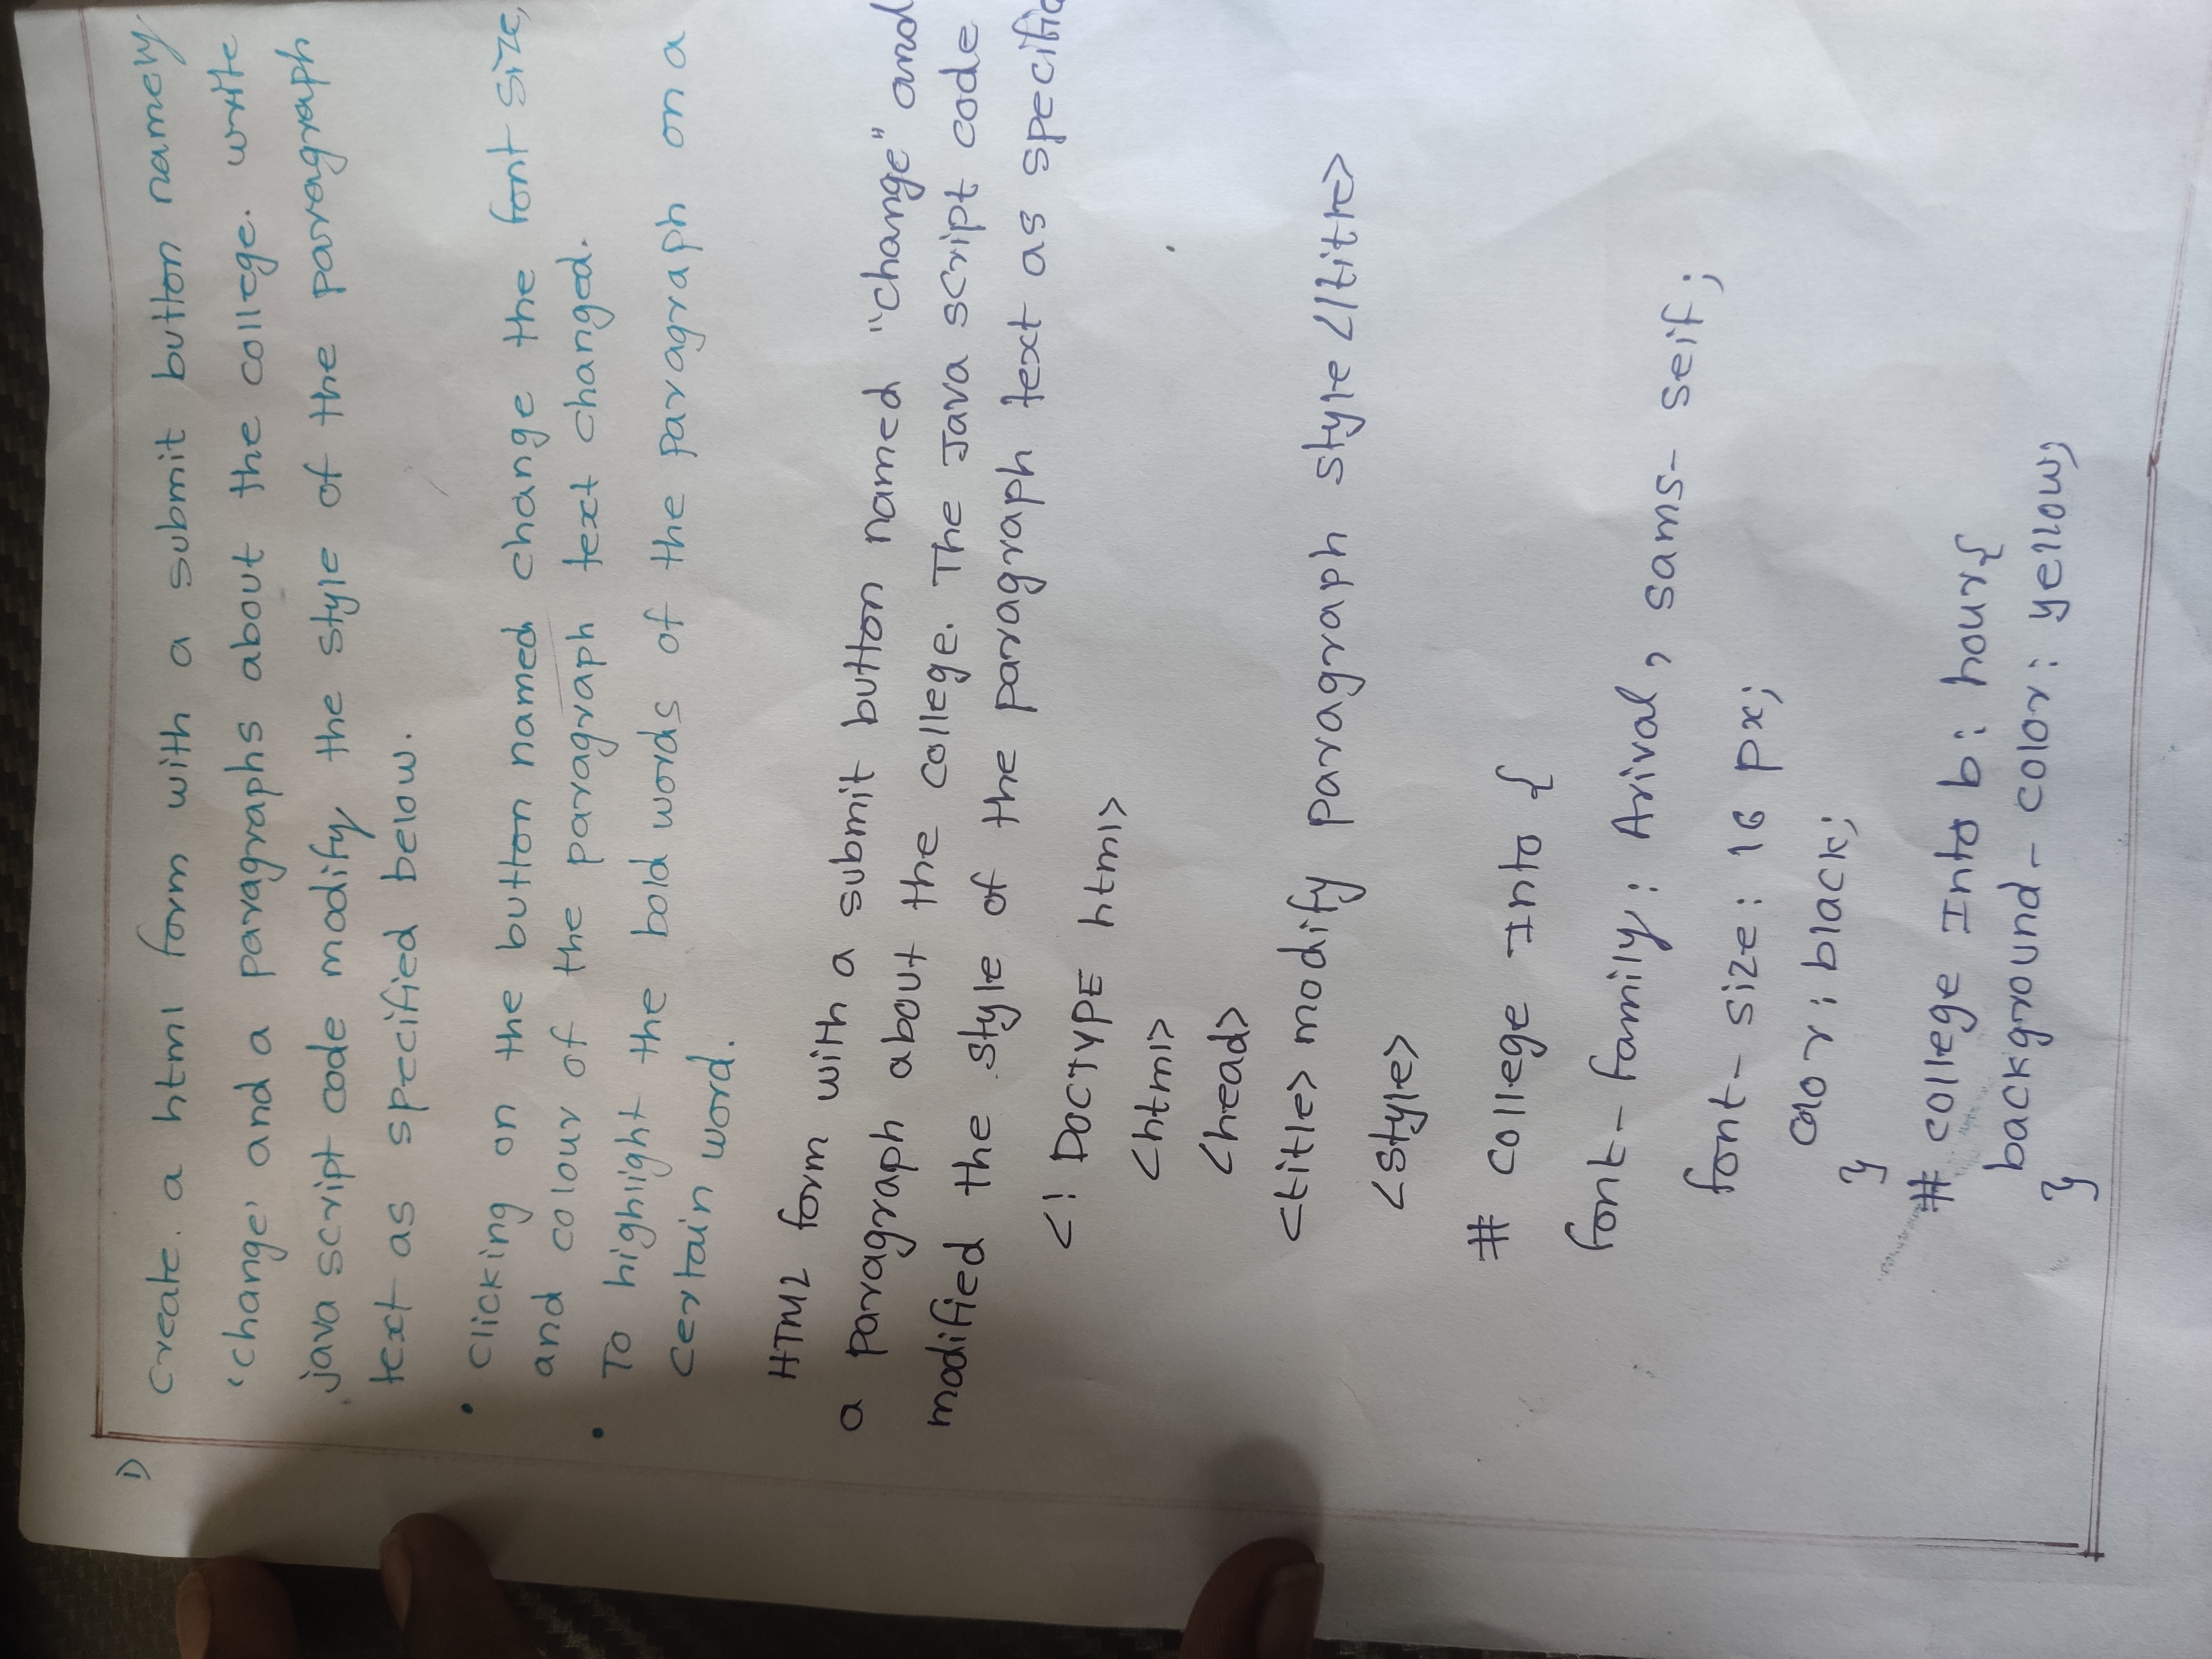 1)
create. a html form with a submit button namely
'change' and a paragraphs about the college. write
java script code modify the style of the paragraph
text as specified below.
• clicking on the button named change the font size,
and colour of the paragraph text changed.
• To highlight the bold words of the paragraph on a
certain word.
HTML form with a submit button named "change" and
a paragraph about the college. The Java script code
modified the style of the paragraph text as specific
<! DOCTYPE html>
<html>
<head>
<title> modify paragraph style </title>
<style>
# college Into {
font-family: Arival, sams-seif;
font-size: 16 px;
color: black;
}
# college Into b: hour{
background-color: yellow;
}